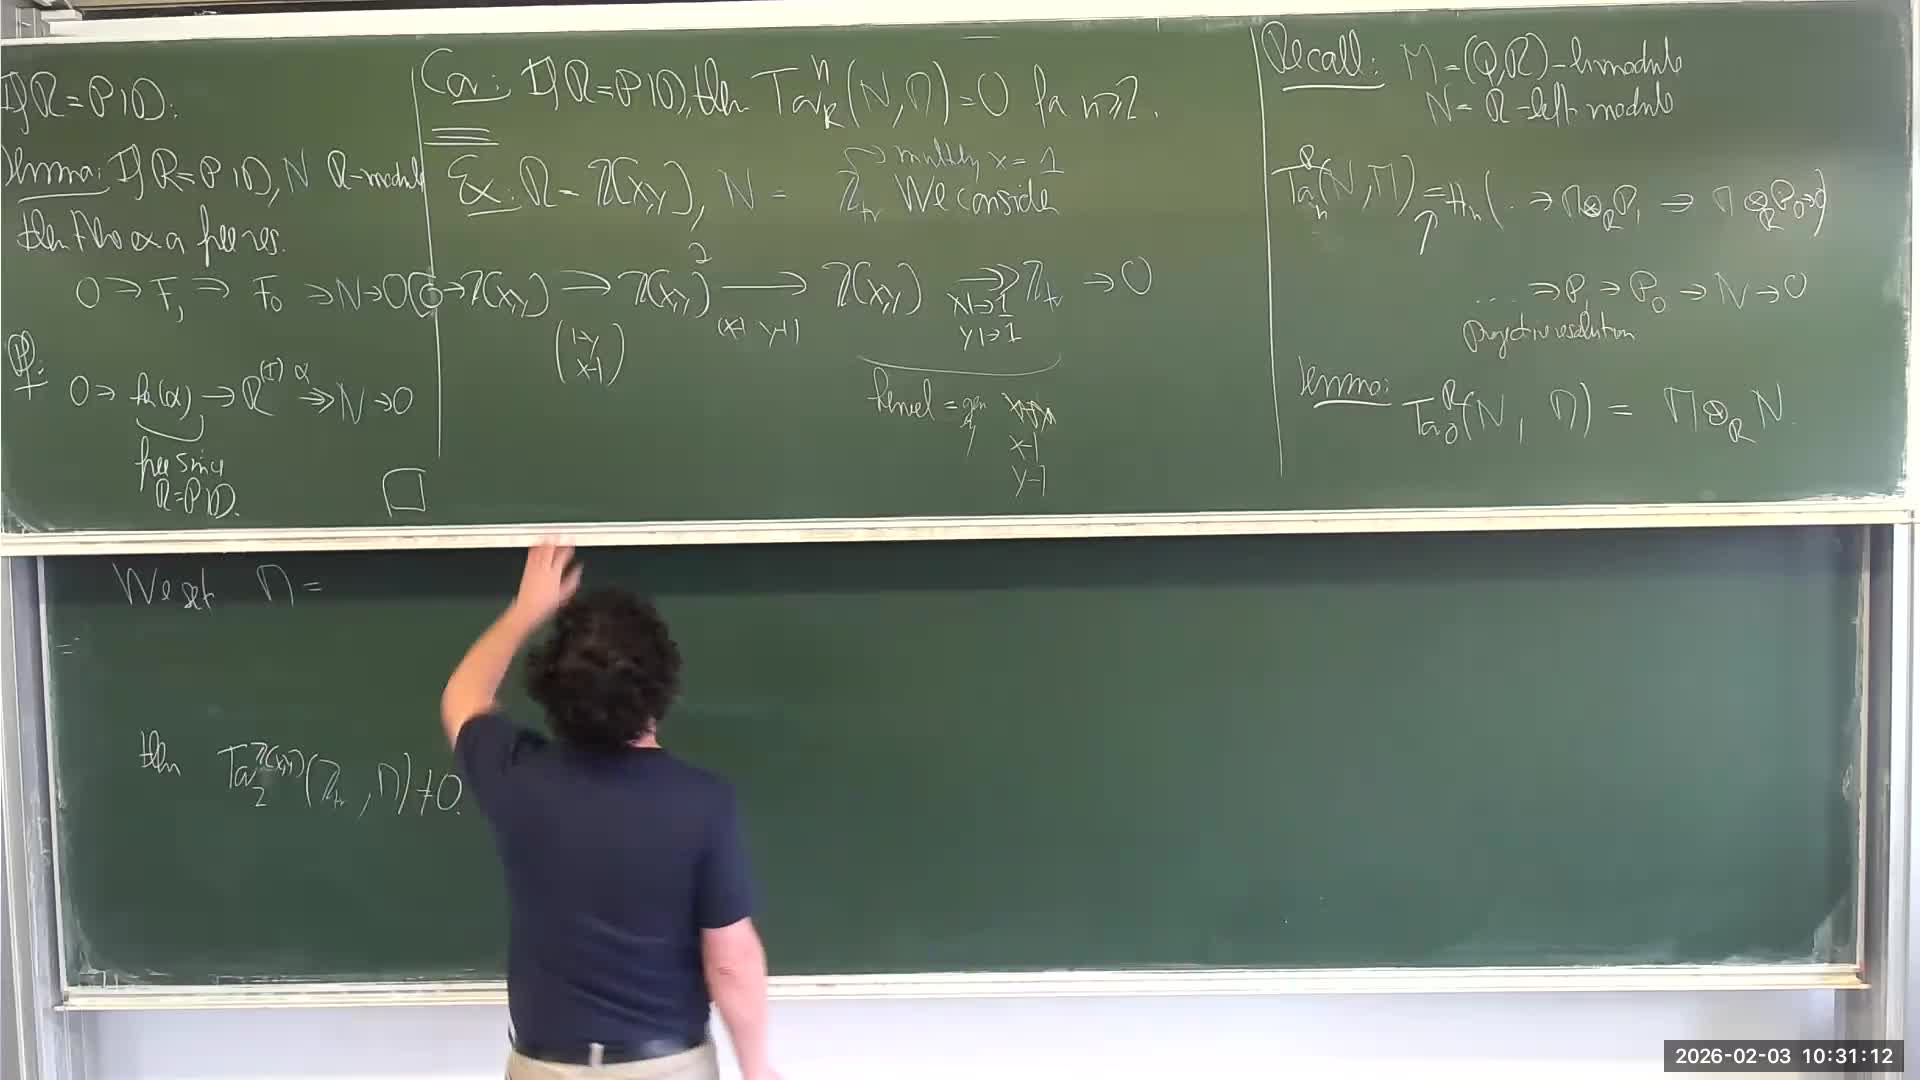 If R = PID:
Lemma: If R = PID, N R-module
then there ex a free res.
0 → F₁ → F₀ → N → 0
Pf:
0 → ker(α) → R^(I) α ↠ N → 0
free since
R = PID.
□
Cor: If R = PID, then Tor^n_R(N, M) = 0 for n ≥ 2.
Ex: R = ℤ[x,y], N = ℤ_tr We consider
multiply x = 1
0 → ℤ[x,y] → ℤ[x,y]² → ℤ[x,y] ↠ ℤ_tr → 0
(1-y
x-1)
(x-1 y-1)
x ↦ 1
y ↦ 1
kernel = gen
by
x-1
y-1
Recall: M = (Q,R)-bimodule
N = R-left module
Tor^R_n(N, M) = H_n(... → M ⊗_R P₁ → M ⊗_R P₀ → 0)
↑
... → P₁ → P₀ → N → 0
projective resolution
Lemma: Tor^R_0(N, M) = M ⊗_R N.
We set M =
=
then Tor_2^ℤ[x,y](ℤ_tr, M) ≠ 0.
2026-02-03 10:31:12